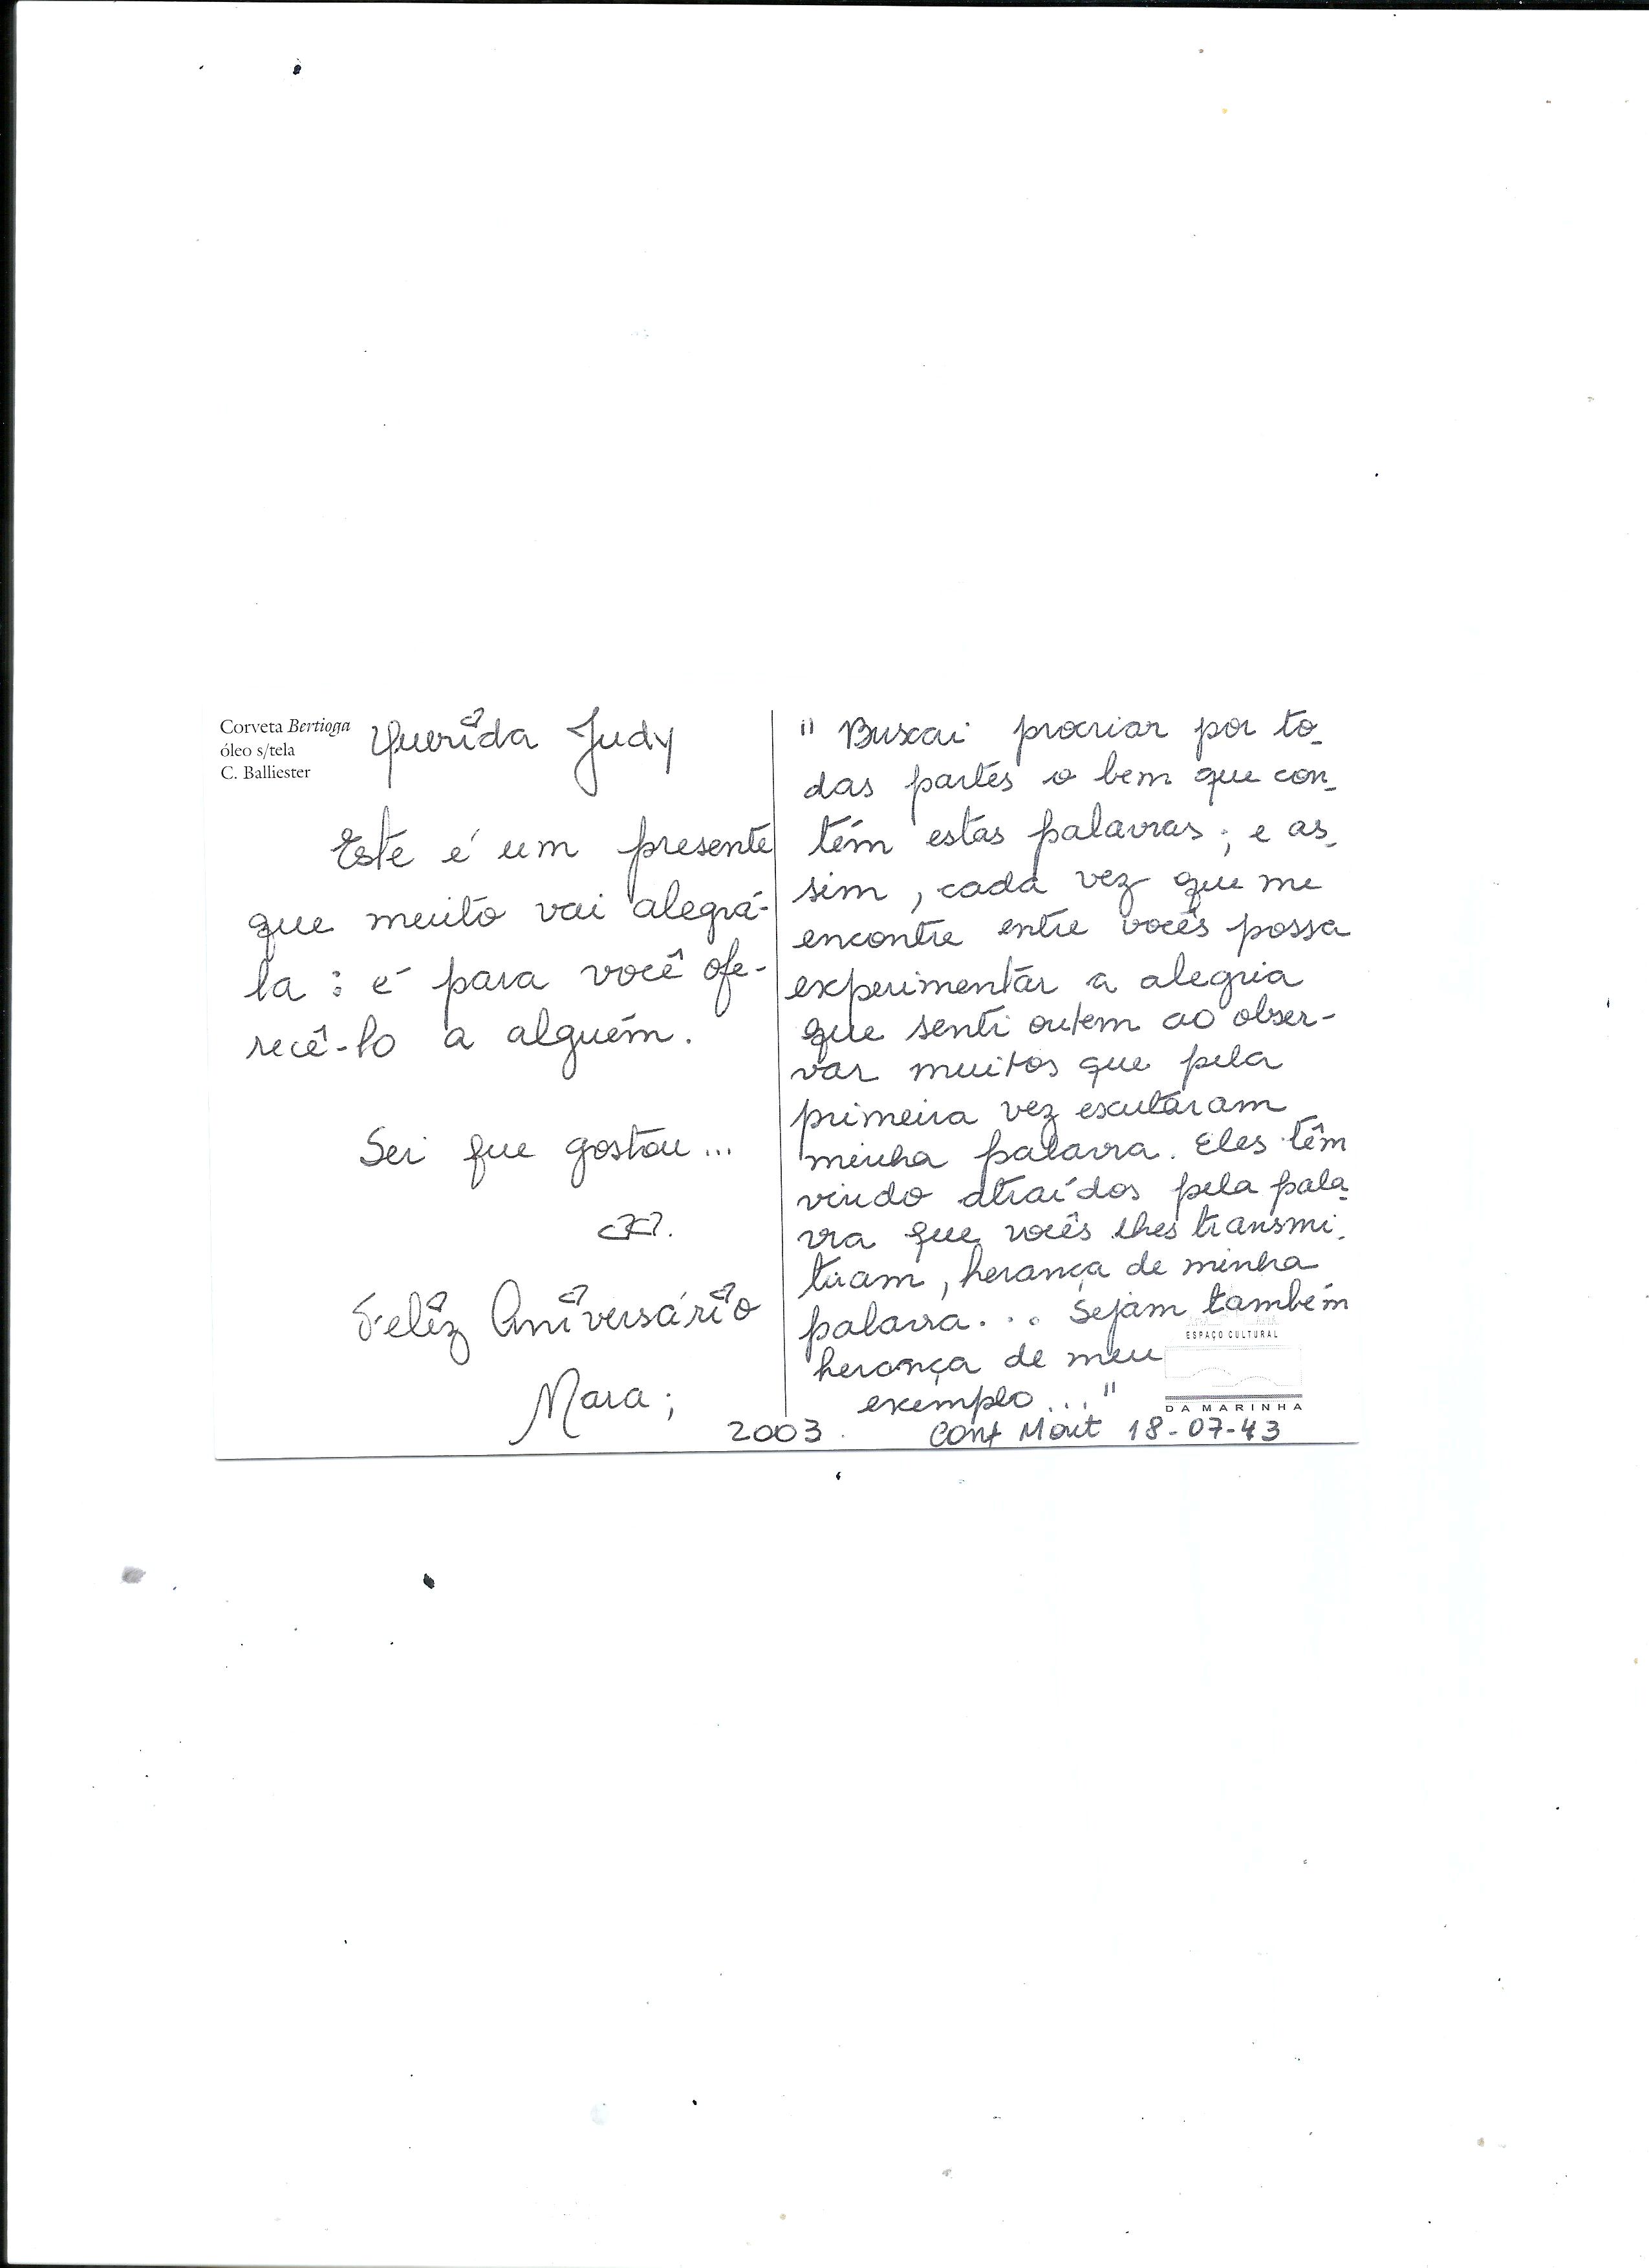 Corveta Bertioga
óleo s/tela
C. Balliester
Querida Judy
Este é um presente
que muito vai alegrá-
la : é para você ofe-
recê-lo a alguém.
Sei que gostou...
Feliz Aniversário
Mara;
2003.
" Buscai procriar por to-
das partes o bem que con-
têm estas palavras; e as-
sim, cada vez que me
encontre entre vocês possa
experimentar a alegria
que senti ontem ao obser-
var muitos que pela
primeira vez escutaram
minha palavra. Eles têm
vindo atraídos pela pala-
vra que vocês lhes transmi-
tiram, herança de minha
palavra... Sejam também
herança de meu
exemplo..."
Conf Mont 18-07-43
ESPAÇO CULTURAL
DA MARINHA